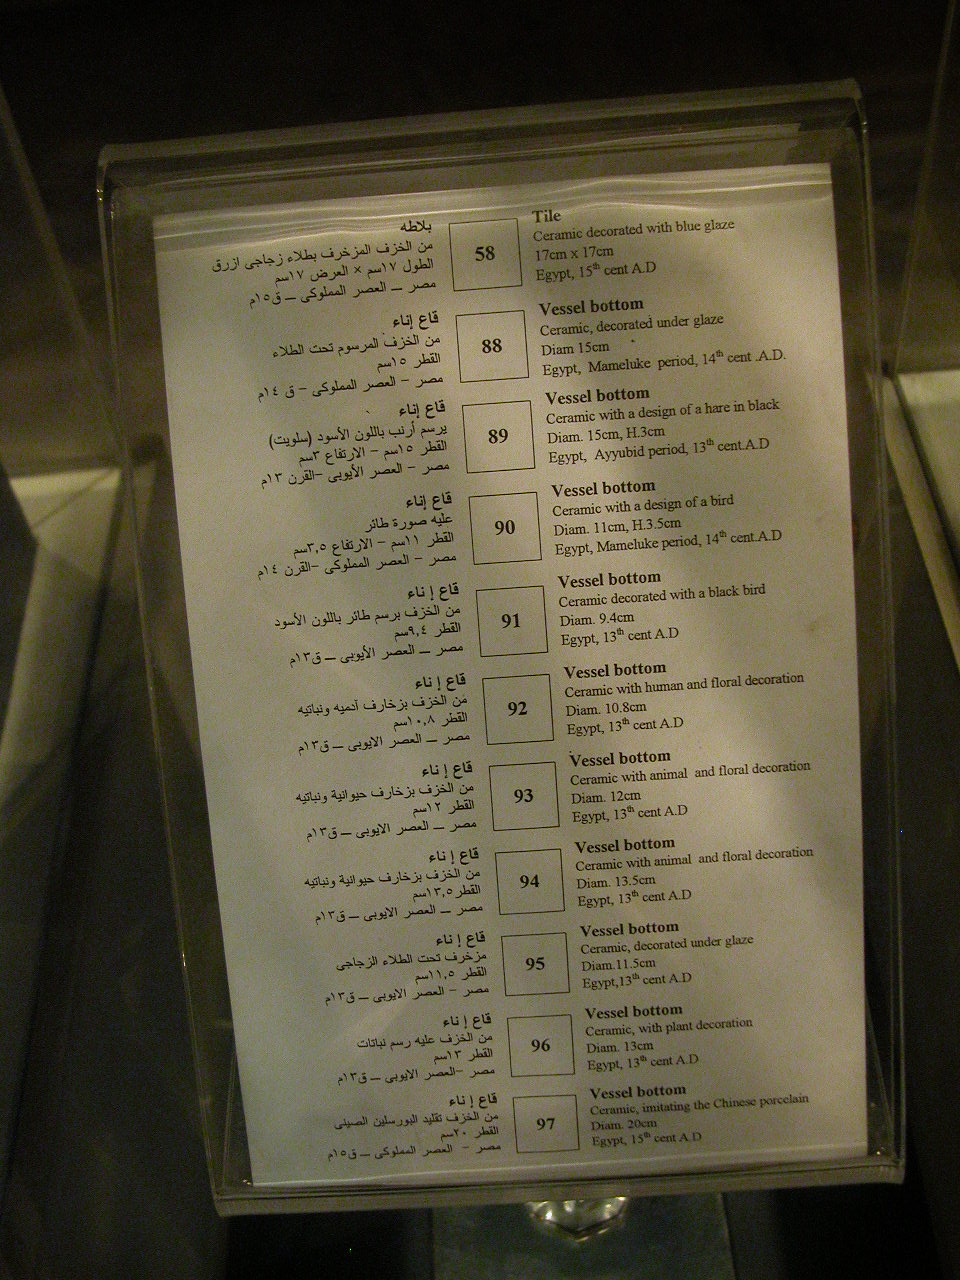 بلاطه
من الخزف المزخرف بطلاء زجاجى ازرق
الطول ١٧سم × العرض ١٧سم
مصر ــ العصر المملوكى ــ ق١٥م
58
Tile
Ceramic decorated with blue glaze
17cm x 17cm
Egypt, 15th cent A.D
قاع إناء
من الخزف المرسوم تحت الطلاء
القطر ١٥سم
مصر – العصر المملوكى – ق ١٤م
88
Vessel bottom
Ceramic, decorated under glaze
Diam 15cm
Egypt, Mameluke period, 14th cent .A.D.
قاع إناء
يرسم أرنب باللون الأسود (سلويت)
القطر ١٥سم – الارتفاع ٣سم
مصر – العصر الأيوبى –القرن ١٣م
89
Vessel bottom
Ceramic with a design of a hare in black
Diam. 15cm, H.3cm
Egypt, Ayyubid period, 13th cent.A.D
قاع إناء
عليه صورة طائر
القطر ١١سم – الارتفاع ٣,٥سم
مصر – العصر المملوكى –القرن ١٤م
90
Vessel bottom
Ceramic with a design of a bird
Diam. 11cm, H.3.5cm
Egypt, Mameluke period, 14th cent.A.D
قاع إناء
من الخزف برسم طائر باللون الأسود
القطر ٩,٤سم
مصر ــ العصر الأيوبى ــ ق١٣م
91
Vessel bottom
Ceramic decorated with a black bird
Diam. 9.4cm
Egypt, 13th cent A.D
قاع إناء
من الخزف بزخارف آدميه ونباتيه
القطر ١٠,٨سم
مصر ــ العصر الايوبى ــ ق١٣م
92
Vessel bottom
Ceramic with human and floral decoration
Diam. 10.8cm
Egypt, 13th cent A.D
قاع إناء
من الخزف بزخارف حيوانية ونباتيه
القطر ١٢سم
مصر ــ العصر الايوبى ــ ق١٣م
93
Vessel bottom
Ceramic with animal and floral decoration
Diam. 12cm
Egypt, 13th cent A.D
قاع إناء
من الخزف بزخارف حيوانية ونباتيه
القطر١٣,٥سم
مصر ــ العصر الايوبى ــ ق١٣م
94
Vessel bottom
Ceramic with animal and floral decoration
Diam. 13.5cm
Egypt, 13th cent A.D
قاع إناء
مزخرف تحت الطلاء الزجاجى
القطر ١١,٥سم
مصر – العصر الايوبى ــ ق١٣م
95
Vessel bottom
Ceramic, decorated under glaze
Diam.11.5cm
Egypt,13th cent A.D
قاع إناء
من الخزف عليه رسم نباتات
القطر ١٣سم
مصر –العصر الايوبى ــ ق١٣م
96
Vessel bottom
Ceramic, with plant decoration
Diam. 13cm
Egypt, 13th cent A.D
قاع إناء
من الخزف تقليد البورسلين الصينى
القطر ٢٠سم
مصر – العصر المملوكى ــ ق١٥م
97
Vessel bottom
Ceramic, imitating the Chinese porcelain
Diam. 20cm
Egypt, 15th cent A.D